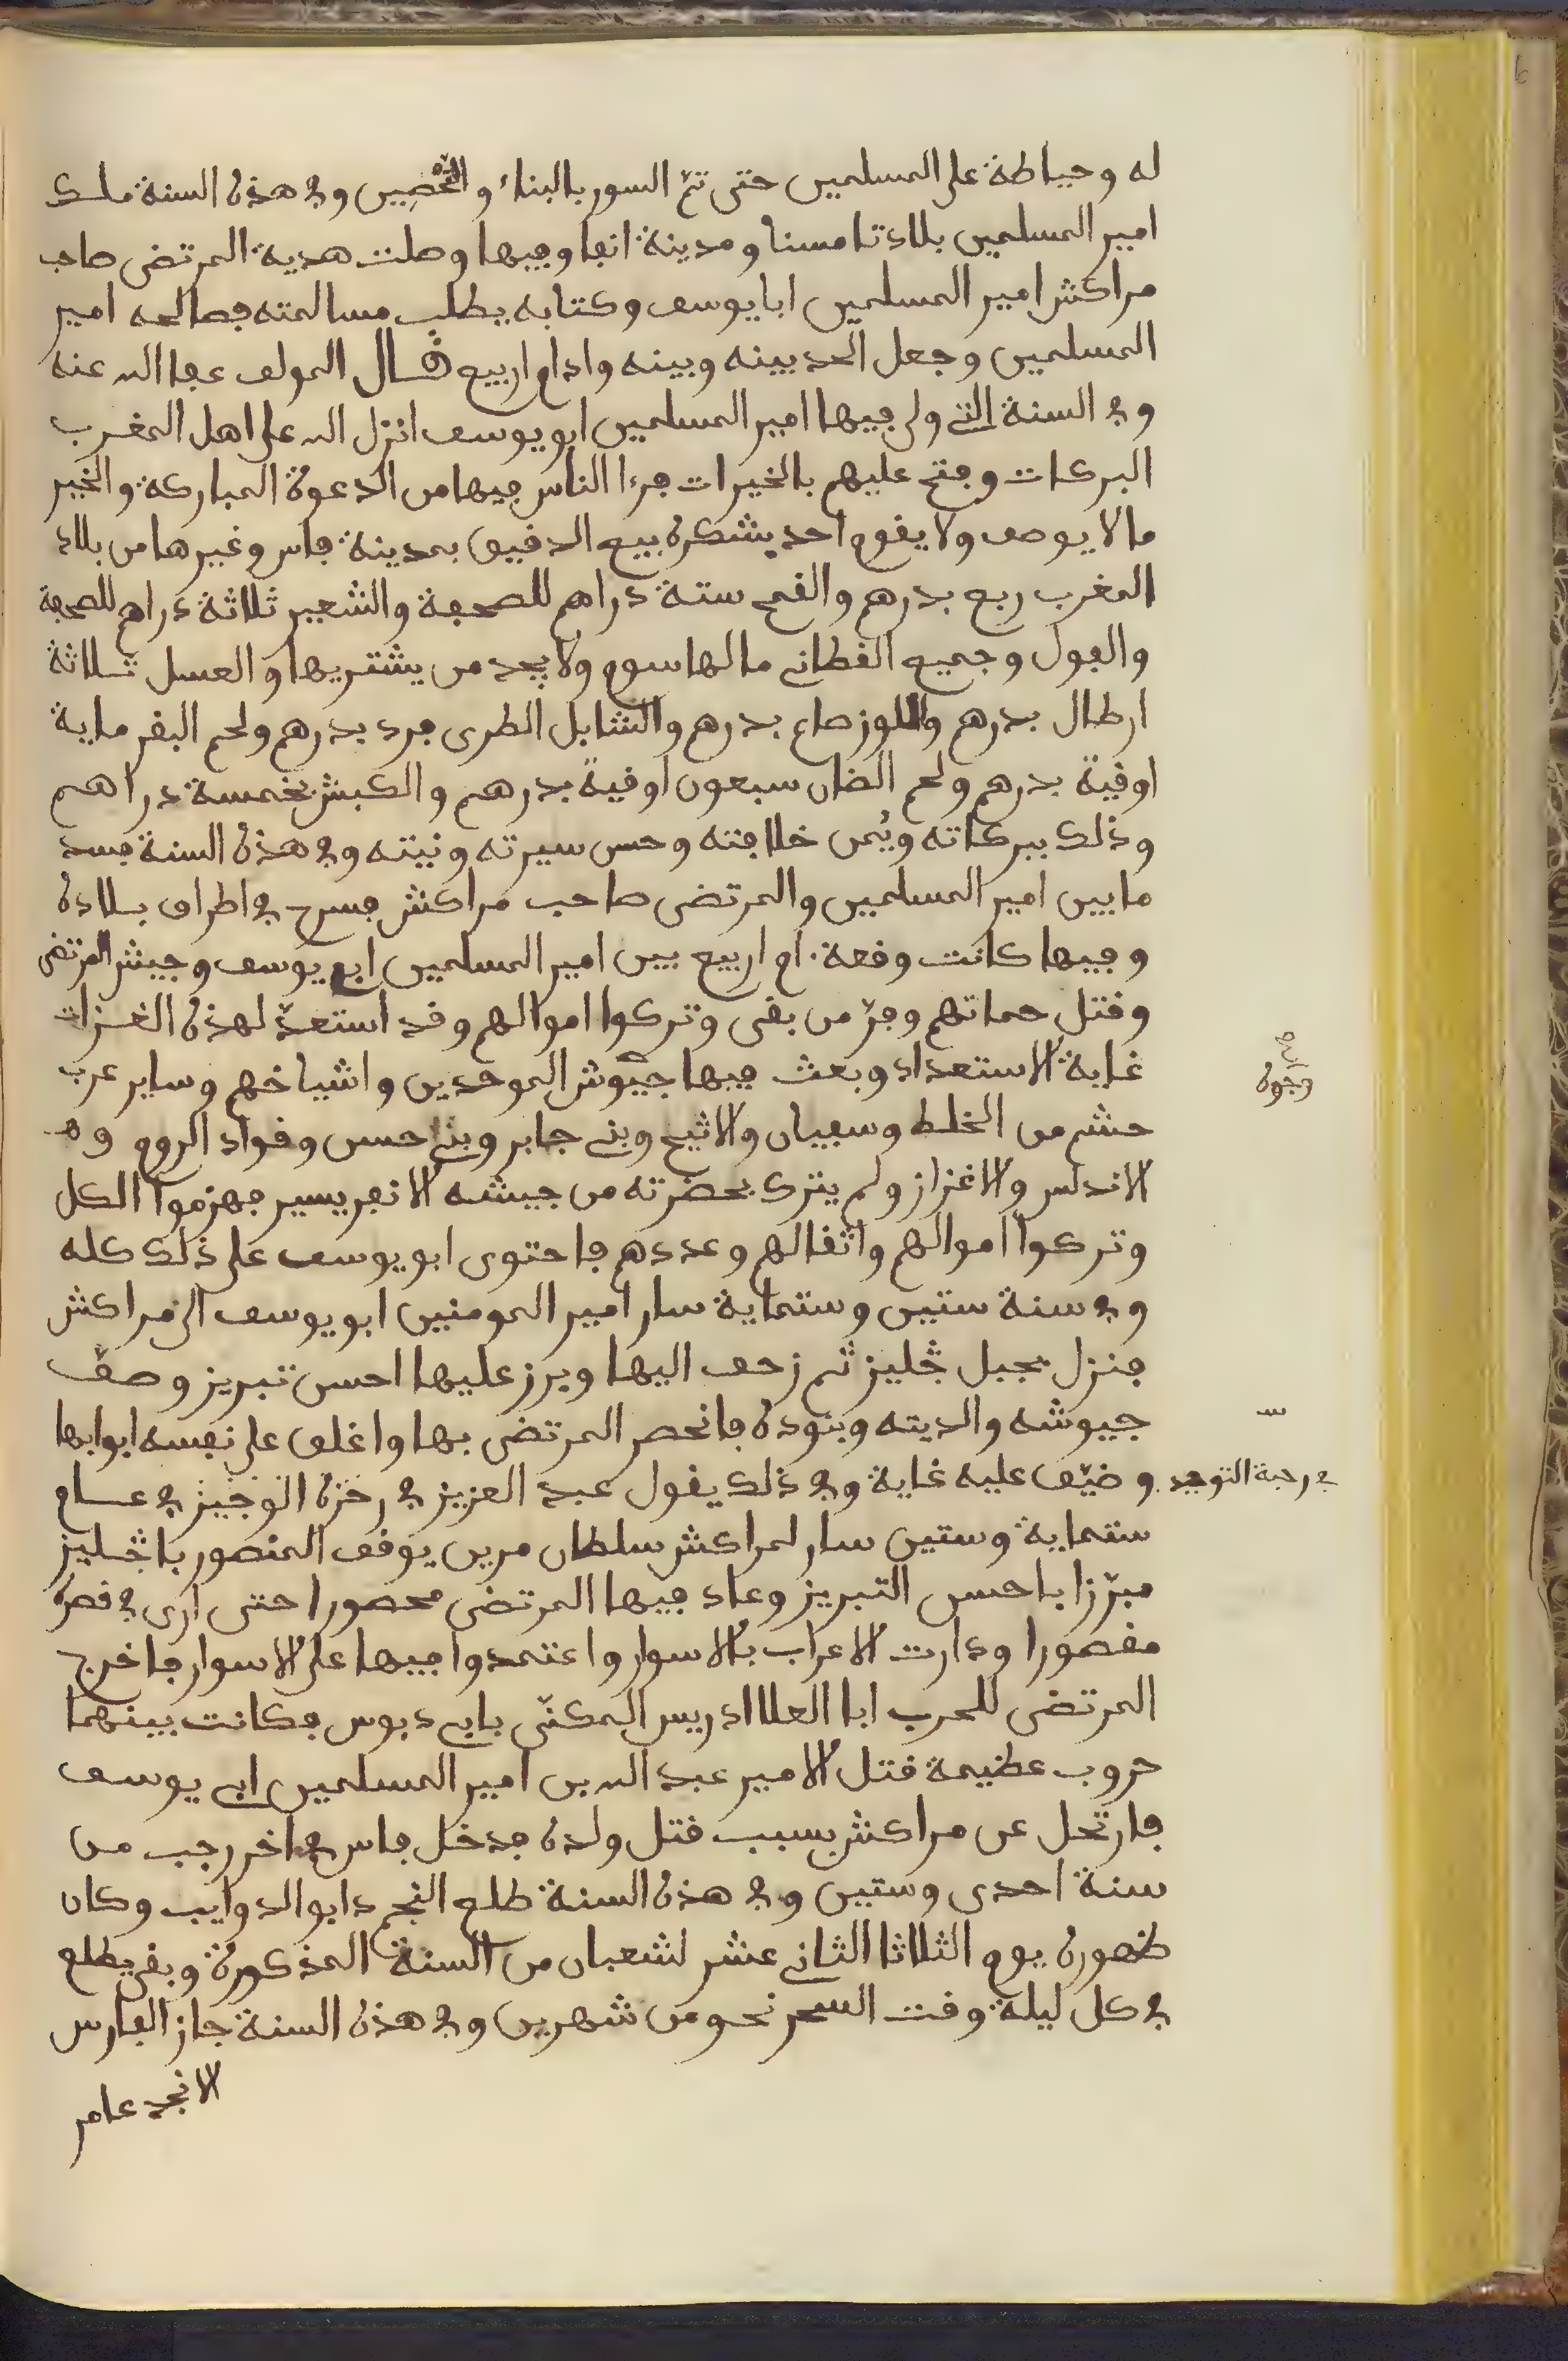 له وحياطة على المسلمين حتى تمّ السور بالبناء والتحصين وفي هذه السنة ملك
امير المسلمين بلاد تامسنا ومدينة انفا وفيها وصلت هدية المرتضى صاحب
مراكش امير المسلمين ابا يوسف وكتابه يطلب مسالمته فصالحه امير
المسلمين وجعل الحد بينه وبينه وادام اربيع قال المولف عفا الله عنه
وفي السنة التي ولى فيها امير المسلمين ابو يوسف انزل الله على اهل المغرب
البركات وفتح عليهم بالخيرات فرءا الناس فيها من الدعوة المباركة والخير
ما لا يوصف ولا يقوم احد بشكره بيع الدقيق بمدينة فاس وغيرها من بلاد
المغرب ربع بدرهم والقمح ستة دراهم للصحفة والشعير ثلاثة دراهم للصحفة
والفول وجميع القطاني مالها سوم ولا يجد من يشتريها والعسل ثلاثة
ارطال بدرهم واللوز صاع بدرهم والشابل الطرى فرد بدرهم ولحم البقر ماية
اوقية بدرهم ولحم الضان سبعون اوقية بدرهم والكبش بخمسة دراهم
وذلك ببركاته ويُمن خلافته وحسن سيرته ونيته وفي هذه السنة فسد
مابين امير المسلمين والمرتضى صاحب مراكش فسرح في اطراف بلاده
وفيها كانت وقعة ام اربيع بين امير المسلمين ابي يوسف وجيش المرتضى
وقتل حماتهم وفرّ من بقى وتركوا اموالهم وقد استعدّ لهذه الغزات
غاية الاستعداد وبعث فيها جيوش الموحدين واشياخهم وساير عرب
وجوه
حشم من الخلط وسفيان والاثبج وبني جابر وبني حسن وقواد الروم و
الاندلس والاغزاز ولم يترك بحضرته من جيشه الا نفر يسير فهزموا الكل
وتركوا اموالهم واثقالهم وعددهم فاحتوى ابو يوسف على ذلك كله
وفي سنة ستين وستماية سار امير المومنين ابو يوسف الى مراكش
فنزل بجبل ڭليز ثم زحف اليها وبرز عليها احسن تبريز وصفّ
جيوشه والديته وبنوده فانحصر المرتضى بها واغلق على نفسه ابوابها
وضيّق عليه غاية وفي ذلك يقول عبد العزيز في رجزه الوجيز في عسام
في رحبة التوحيد
ستماية وستين سار لمراكش سلطان مرين يوقف المنصور باڭليز
مبرّزا باحسن التبريز وعاد فيها المرتضى محصورا حتى ارى في قصره
مقصورا ودارت الاعراب بالاسوار واعتمدوا فيها على الاسوار فاخرج
المرتضى للحرب ابا العلا ادريس المكنّى بابي دبوس فكانت بينهما
حروب عظيمة قتل الامير عبد الله بن امير المسلمين ابي يوسف
فارتحل عن مراكش بسبب قتل ولده فدخل فاس في اخر رجب من
سنة احدى وستين وفي هذه السنة طلع النجم دابو الدوايب وكان
ظهوره يوم الثلاثا الثاني عشر لشعبان من السنة المذكورة وبقى يطلع
في كل ليلة وقت السحر نحو من شهرين وفي هذه السنة جاز الفارس
الانجد عامر